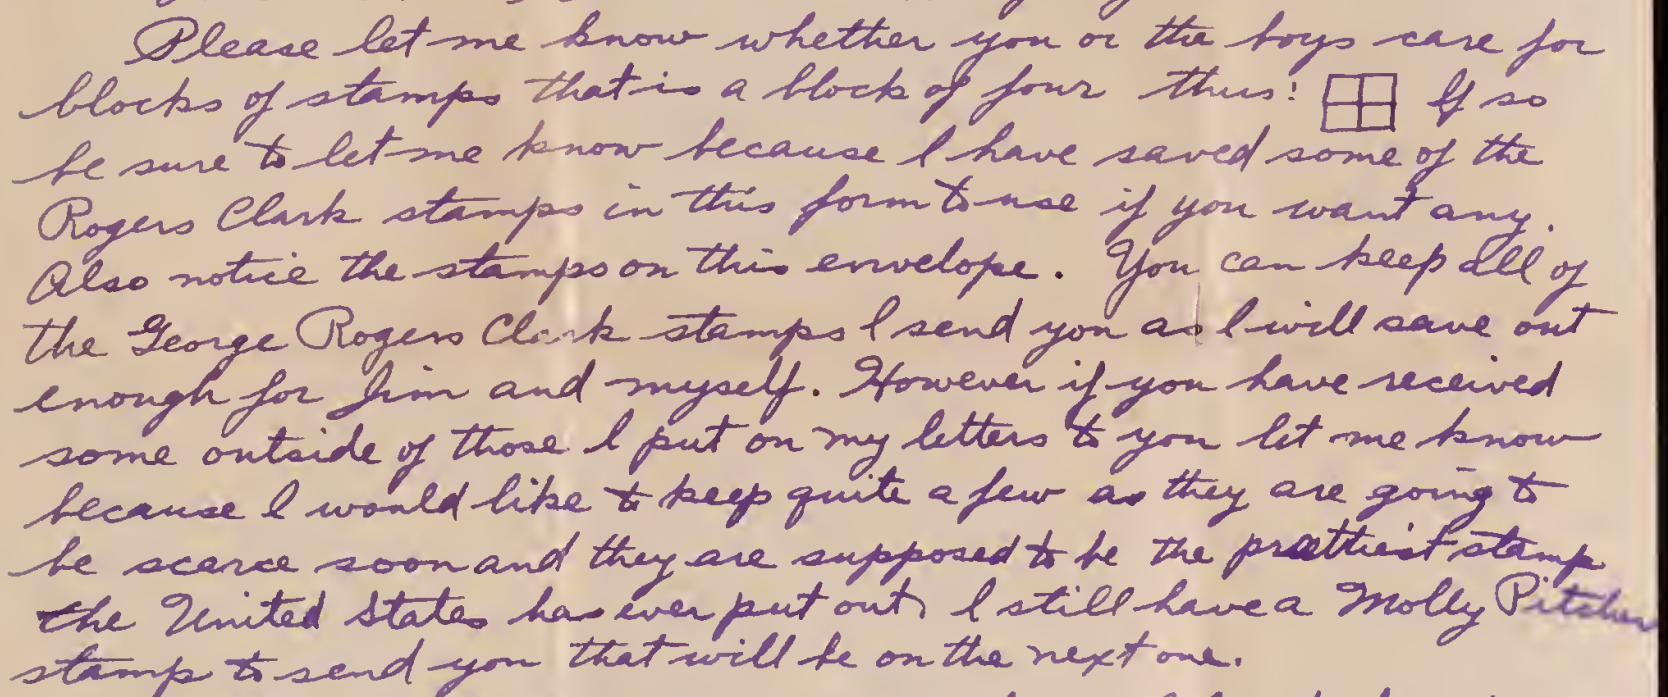 Please let me know whether you or the boys care for
blocks of stamps that is a block of four thus: If so
be sure to let me know because I have saved some of the
Rogers Clark stamps in this form to use if you want any.
Also notice the stamps on this envelope. You can keep all of
the George Rogers Clark stamps I send you as I will save out
enough for Jim and myself. However if you have received
some outside of those I put on my letters to you let me know
because I would like to keep quite a few as they are going to
be scarce soon and they are supposed to be the prettiest stamp
the United States has ever put out, I still have a Molly Pitcher
stamp to send you that will be on the next one.